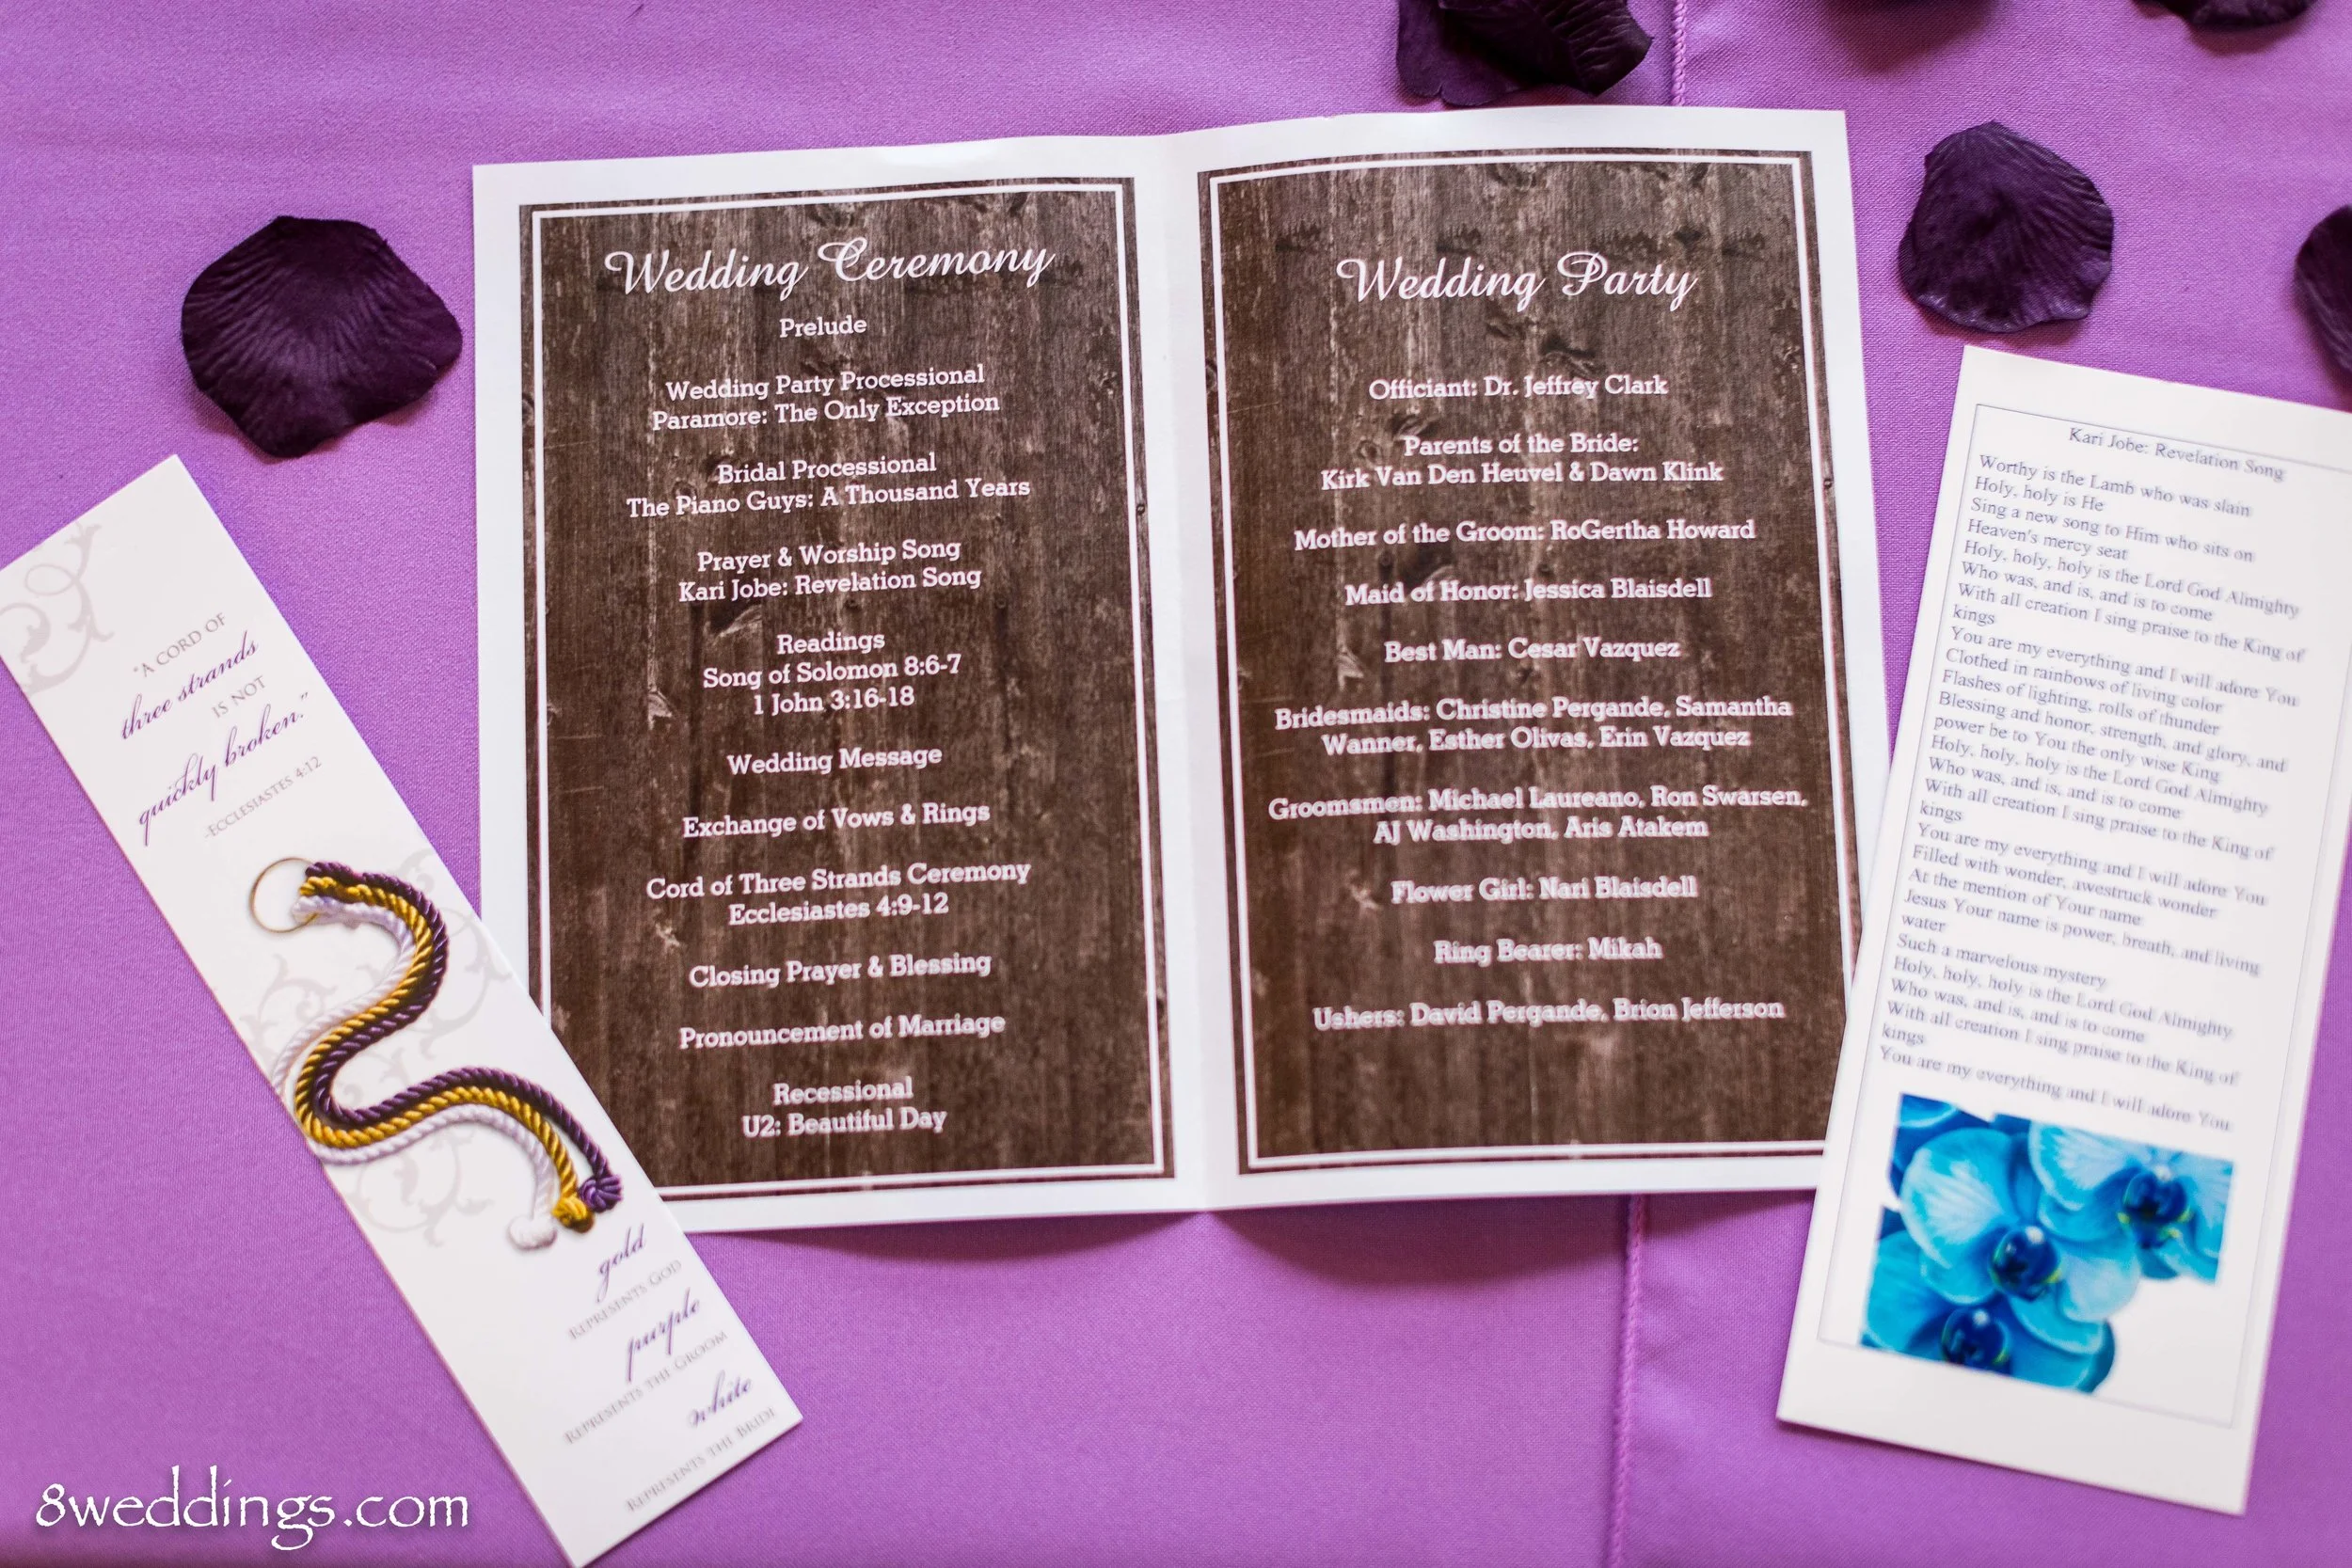 "A CORD OF
three strands
IS NOT
quickly broken."
-ECCLESIASTES 4:12
gold
REPRESENTS GOD
purple
REPRESENTS THE GROOM
white
REPRESENTS THE BRIDE
Wedding Ceremony
Prelude
Wedding Party Processional
Paramore: The Only Exception
Bridal Processional
The Piano Guys: A Thousand Years
Prayer & Worship Song
Kari Jobe: Revelation Song
Readings
Song of Solomon 8:6-7
1 John 3:16-18
Wedding Message
Exchange of Vows & Rings
Cord of Three Strands Ceremony
Ecclesiastes 4:9-12
Closing Prayer & Blessing
Pronouncement of Marriage
Recessional
U2: Beautiful Day
Wedding Party
Officiant: Dr. Jeffrey Clark
Parents of the Bride:
Kirk Van Den Heuvel & Dawn Klink
Mother of the Groom: RoGertha Howard
Maid of Honor: Jessica Blaisdell
Best Man: Cesar Vazquez
Bridesmaids: Christine Pergande, Samantha
Wanner, Esther Olivas, Erin Vazquez
Groomsmen: Michael Laureano, Ron Swarsen,
AJ Washington, Aris Atakem
Flower Girl: Nari Blaisdell
Ring Bearer: Mikah
Ushers: David Pergande, Brion Jefferson
Kari Jobe: Revelation Song
Worthy is the Lamb who was slain
Holy, holy is He
Sing a new song to Him who sits on
Heaven's mercy seat
Holy, holy, holy is the Lord God Almighty
Who was, and is, and is to come
With all creation I sing praise to the King of
kings
You are my everything and I will adore You
Clothed in rainbows of living color
Flashes of lighting, rolls of thunder
Blessing and honor, strength, and glory, and
power be to You the only wise King
Holy, holy, holy is the Lord God Almighty
Who was, and is, and is to come
With all creation I sing praise to the King of
kings
You are my everything and I will adore You
Filled with wonder, awestruck wonder
At the mention of Your name
Jesus Your name is power, breath, and living
water
Such a marvelous mystery
Holy, holy, holy is the Lord God Almighty
Who was, and is, and is to come
With all creation I sing praise to the King of
kings
You are my everything and I will adore You
8weddings.com